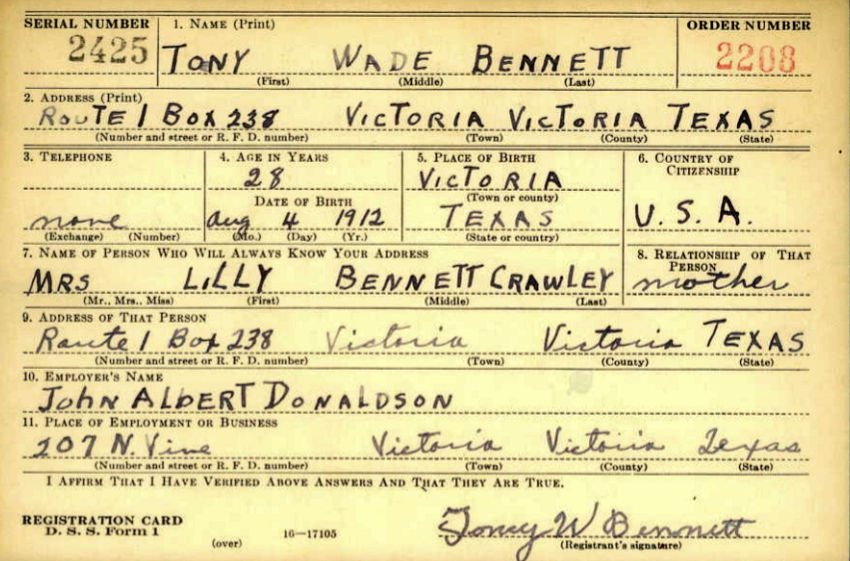 SERIAL NUMBER 1. NAME (Print) ORDER NUMBER
2425 TONY WADE BENNETT 2208
(First) (Middle) (Last)
2. ADDRESS (Print)
ROUTE 1 BOX 238 VICTORIA VICTORIA TEXAS
(Number and street or R. F. D. number) (Town) (County) (State)
3. TELEPHONE 4. AGE IN YEARS 5. PLACE OF BIRTH 6. COUNTRY OF CITIZENSHIP
28 VICTORIA
DATE OF BIRTH (Town or county)
none Aug 4 1912 TEXAS U. S. A.
(Exchange) (Number) (Mo.) (Day) (Yr.) (State or country)
7. NAME OF PERSON WHO WILL ALWAYS KNOW YOUR ADDRESS 8. RELATIONSHIP OF THAT PERSON
MRS LiLLY BENNETT CRAWLEY mother
(Mr., Mrs., Miss) (First) (Middle) (Last)
9. ADDRESS OF THAT PERSON
Route 1 Box 238 Victoria Victoria TEXAS
(Number and street or R. F. D. number) (Town) (County) (State)
10. EMPLOYER'S NAME
JOHN ALBERT DONALDSON
11. PLACE OF EMPLOYMENT OR BUSINESS
207 N. Vine Victoria Victoria Texas
(Number and street or R. F. D. number) (Town) (County) (State)
I AFFIRM THAT I HAVE VERIFIED ABOVE ANSWERS AND THAT THEY ARE TRUE.
REGISTRATION CARD
D. S. S. Form 1 16—17105 Toney W Bennett
(over) (Registrant's signature)